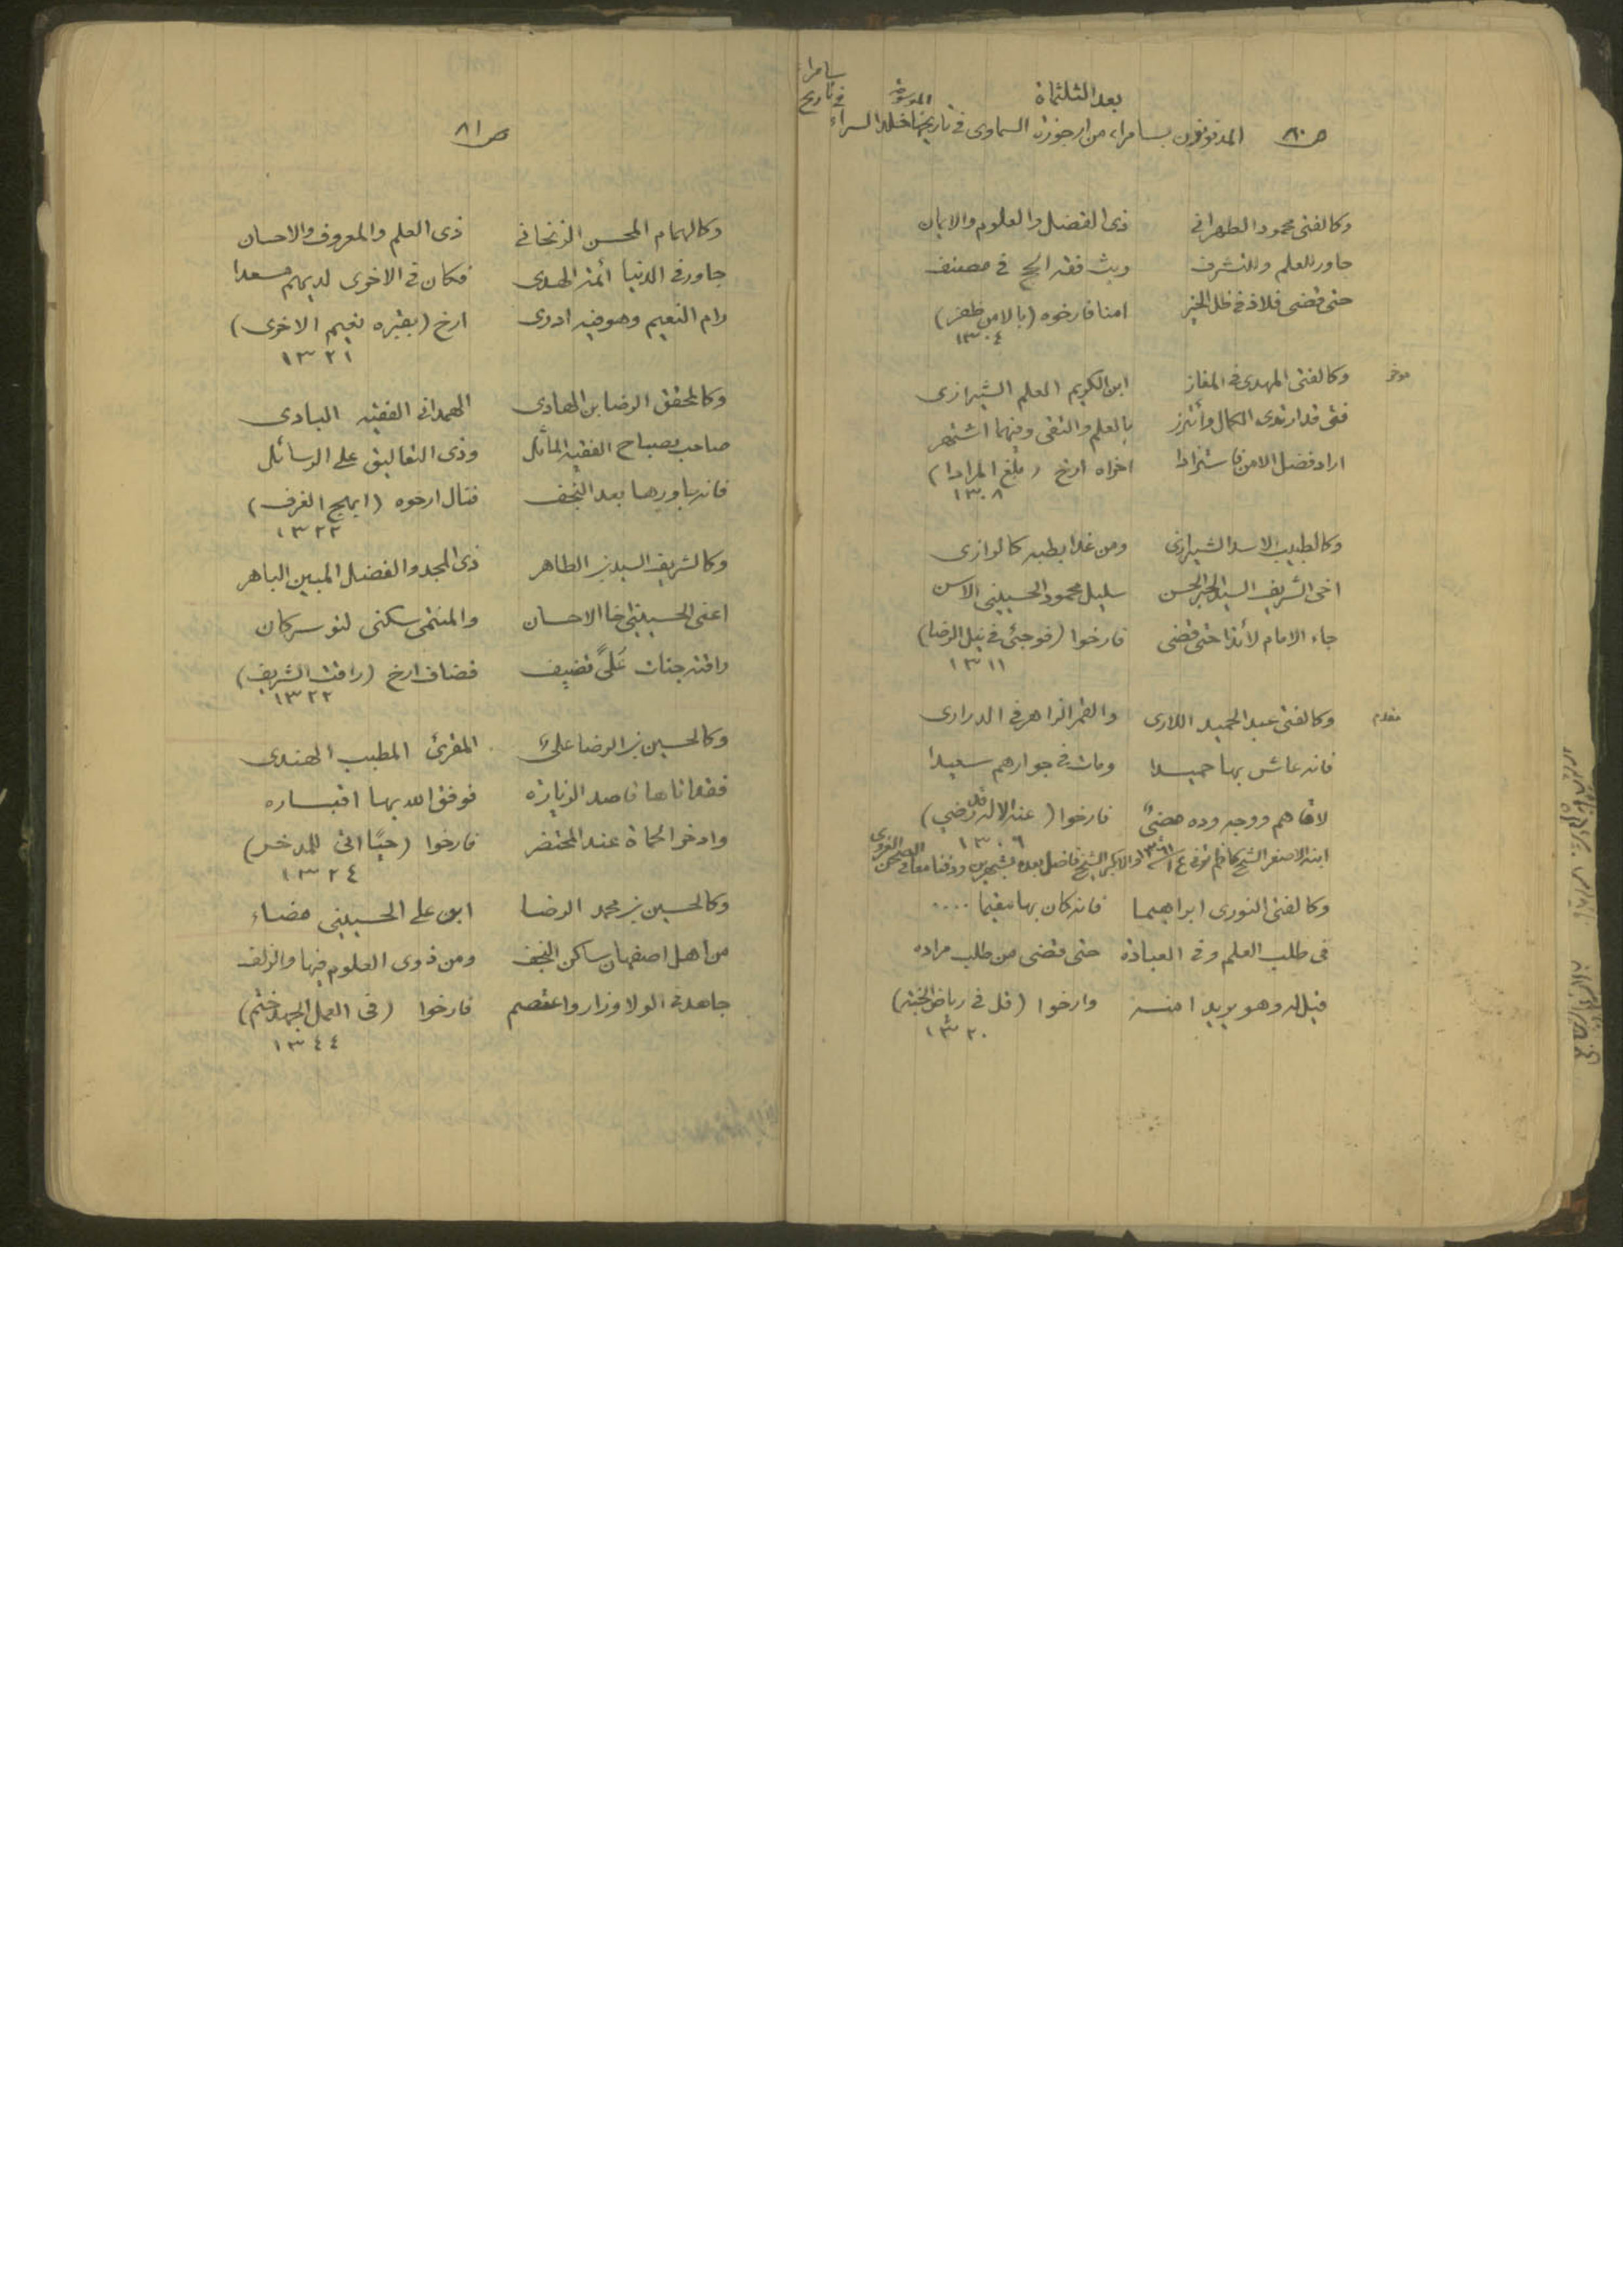 بعد الثلثمأة
ص ٨٠ المدفونون بسامراء من ارجوزة السماوي الموسومة في تاريخ سامراء
وكالفتى محمود الطهراني ذي الفضل والعلوم والايمان
جاور للعلم وللتشرف وبث فقه الحج في مصنف
حتى قضى فلاذ في ظل الخير امنا فارخوه (بالامن ظفر)
١٣٠٤
مؤخر وكالفتى المهدي في المغاز ابن الكريم العلم الشيرازي
فتى قد ارتدى الكمال وأتزر بالعلم والتقى وفيهما اشتهر
اراد فضل الامن فاستزادا اخراه ارخ (بلغ المرادا)
١٣٠٨
وكالطبيب الاسد الشيرازي ومن غدا بطبه كالرازي
اخي الشريف السيد الحبر الحسن سليل محمود الحسيني الاسن
جاء الامام لائذا حتى قضى فارخوا (فوجئ في نيل الرضا)
١٣١١
مقدم وكالفتى عبد الحميد اللاري والقمر الزاهر في الدراري
فانه عاش بها حميدا ومات في جوارهم سعيدا
لاقاهم ووجه وده مضيّ فارخوا (عند الاله قل رضي)
١٣٠٦
ابنه الاصغر الشيخ كاظم توفي والاكبر الشيخ فاضل بعده بشهرين ودفنا معا في الصحن الغروي
وكالفتى النوري ابراهيما فانه كان بها مقيما ....
في طلب العلم وفي العبادة حتى قضى من طلب مراده
قيل له وهو يريد امنه وارخوا (قل في رياض الجنه)
١٣٢٠
ص ٨١
وكالهمام المحسن الزنجاني ذي العلم والمعروف والاحسان
جاور في الدنيا أئمة الهدى فكان في الاخرى لديهم مسعدا
رام النعيم وهو فيه ادرى ارخ (بقبره نعيم الاخرى)
١٣٢١
وكالمحقق الرضا بن الهادي الهمداني الفقيه البادي
صاحب مصباح الفقيه الماثل وذي التعاليق على الرسائل
فانه جاورها بعد النجف فنال ارخوه (ابهج الغرف)
١٣٢٢
وكالشريف السيد بن الطاهر ذي المجد والفضل المبين الباهر
اعني الحسيني اخا الاحسان والمنتمي سكنى لتوسركان
رافته جنات عليً تضيف فضاف ارخ (رافت الشريف)
١٣٢٢
وكالحسين بن الرضا علي المقرئ المطبب الهندي
فقد اتاها قاصد الزيارة فوفق الله بها اقباره
وادخر الحماة عند المحتضر فارخوا (حبًا اتى للمدخر)
١٣٢٤
وكالحسين بن محمد الرضا ابن علي الحسيني مضاء
من اهل اصفهان ساكن النجف ومن ذوي العلوم فيها والزلف
جاهد في الولا وزار واعتصم فارخوا (في العمل الجهد ختم)
١٣٤٤